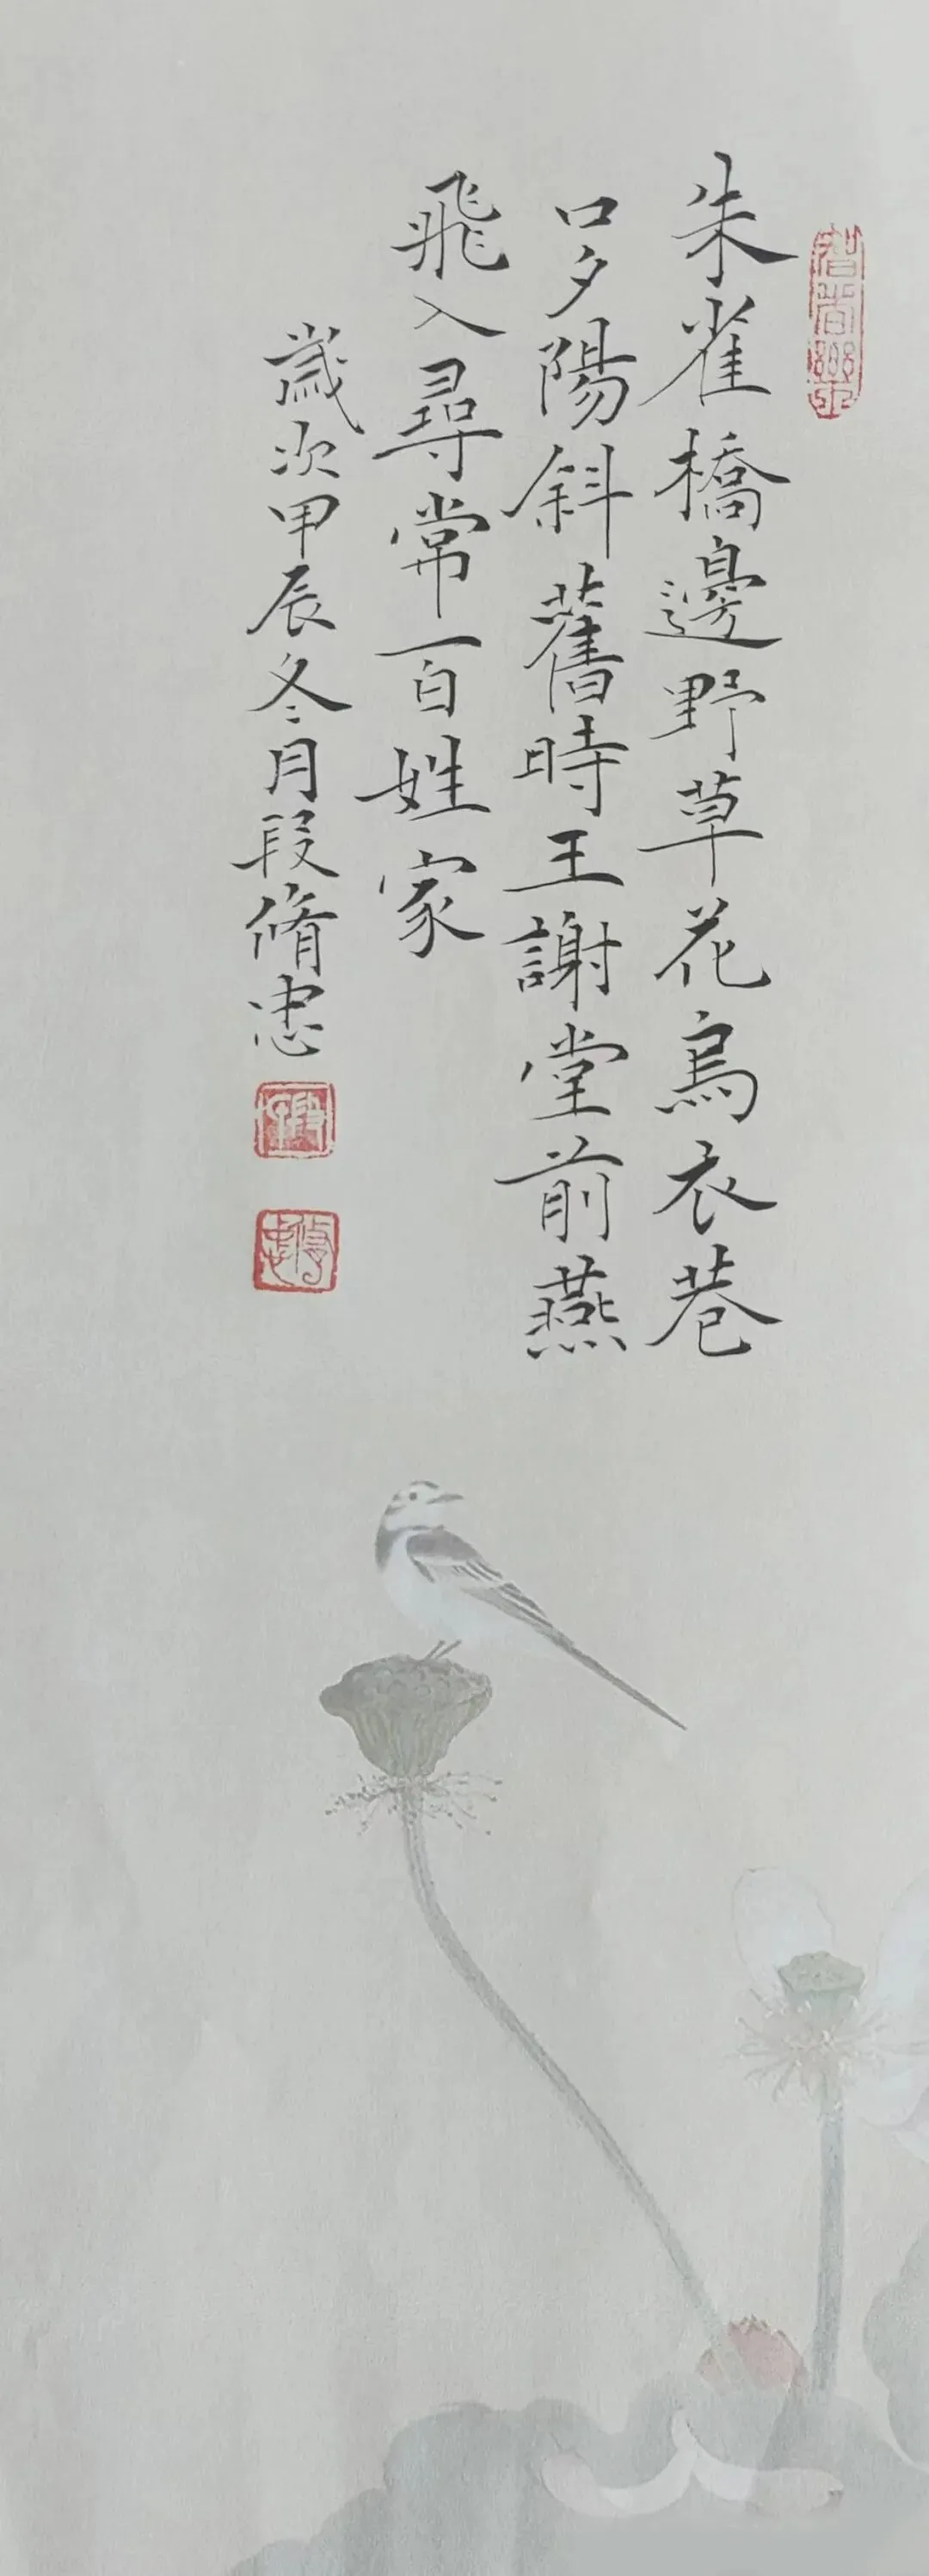 朱雀橋邊野草花烏衣巷
口夕陽斜舊時王謝堂前燕
飛入尋常百姓家
歲次甲辰冬月段脩忠